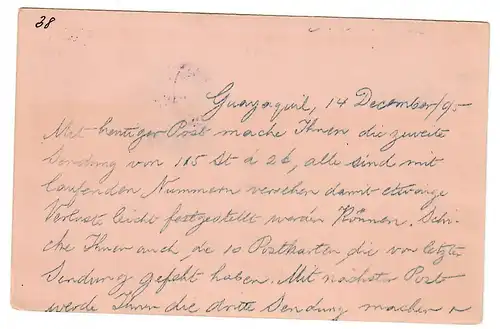 38
Guayaquil, 14 December/95
Mit heutiger Post mache Ihnen die zweite
Sendung von 115 St à 2c, alle sind mit
laufenden Nummern versehen damit etwaige
Verluste leicht festgestellt werden können. Schi-
cke Ihnen auch, die 10 Postkarten die vor letzter
Sendung gefehlt haben. Mit nächster Post
werde Ihnen die dritte Sendung machen